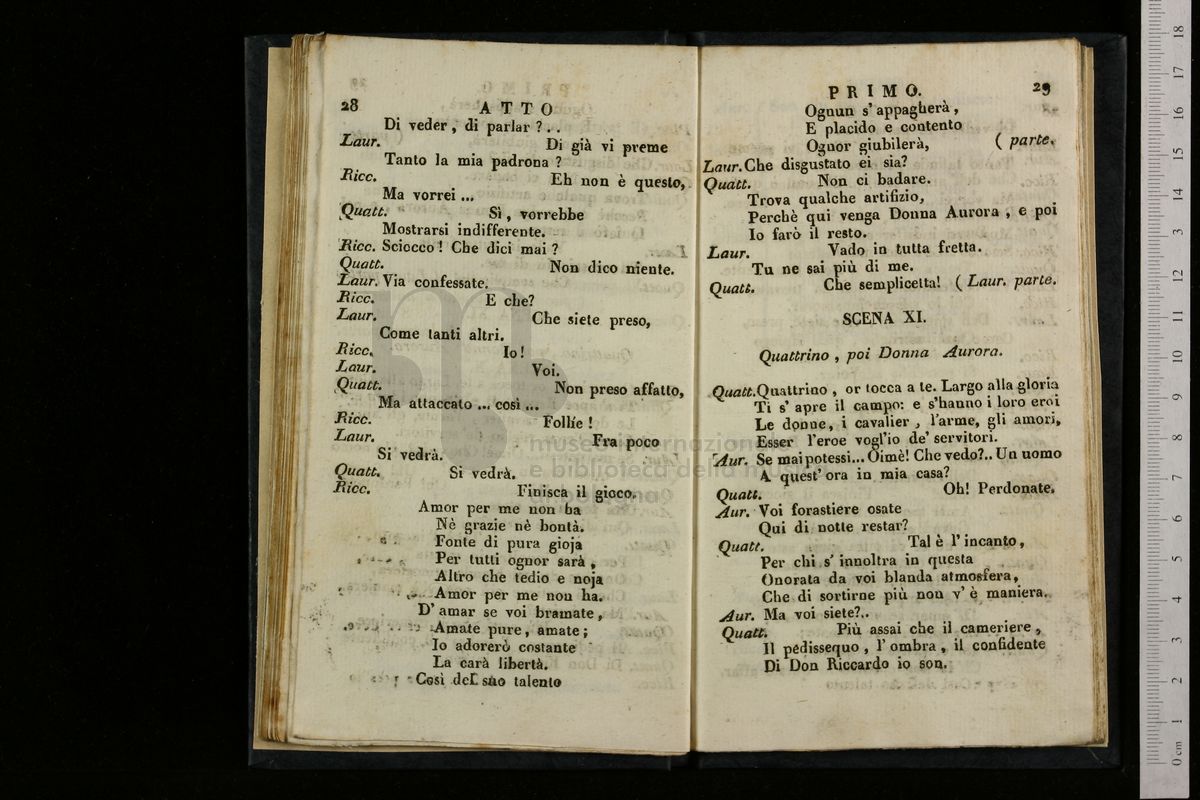 28 ATTO
Di veder, di parlar?..
Laur. Di già vi preme
Tanto la mia padrona?
Ricc. Eh non è questo,
Ma vorrei ...
Quatt. Sì, vorrebbe
Mostrarsi indifferente.
Ricc. Sciocco! Che dici mai?
Quatt. Non dico niente.
Laur. Via confessate.
Ricc. E che?
Laur. Che siete preso,
Come tanti altri.
Ricc. Io!
Laur. Voi.
Quatt. Non preso affatto,
Ma attaccato ... così ...
Ricc. Follie!
Laur. Fra poco
Si vedrà.
Quatt. Si vedrà.
Ricc. Finisca il gioco.
Amor per me non ha
Nè grazie nè bontà.
Fonte di pura gioja
Per tutti ognor sarà,
Altro che tedio e noja
Amor per me non ha.
D' amar se voi bramate,
Amate pure, amate;
Io adorerò costante
La carà libertà.
Così del suo talento
PRIMO. 29
Ognun s' appagherà,
E placido e contento
Ognor giubilerà, ( parte.
Laur. Che disgustato ei sia?
Quatt. Non ci badare.
Trova qualche artifizio,
Perchè qui venga Donna Aurora, e poi
Io farò il resto.
Laur. Vado in tutta fretta.
Tu ne sai più di me.
Quatt. Che semplicetta! ( Laur. parte.
SCENA XI.
Quattrino, poi Donna Aurora.
Quatt. Quattrino, or tocca a te. Largo alla gloria
Ti s' apre il campo: e s'hanno i loro eroi
Le donne, i cavalier, l'arme, gli amori,
Esser l'eroe vogl'io de' servitori.
Aur. Se mai potessi... Oimè! Che vedo?.. Un uomo
A quest' ora in mia casa?
Quatt. Oh! Perdonate.
Aur. Voi forastiere osate
Qui di notte restar?
Quatt. Tal è l' incanto,
Per chi s' innoltra in questa
Onorata da voi blanda atmosfera,
Che di sortirne più non v' è maniera.
Aur. Ma voi siete?..
Quatt. Più assai che il cameriere,
Il pedissequo, l' ombra, il confidente
Di Don Riccardo io son.
museo internazionale
e biblioteca della musica
di bologna
0 cm 1 2 3 4 5 6 7 8 9 10 11 12 13 14 15 16 17 18